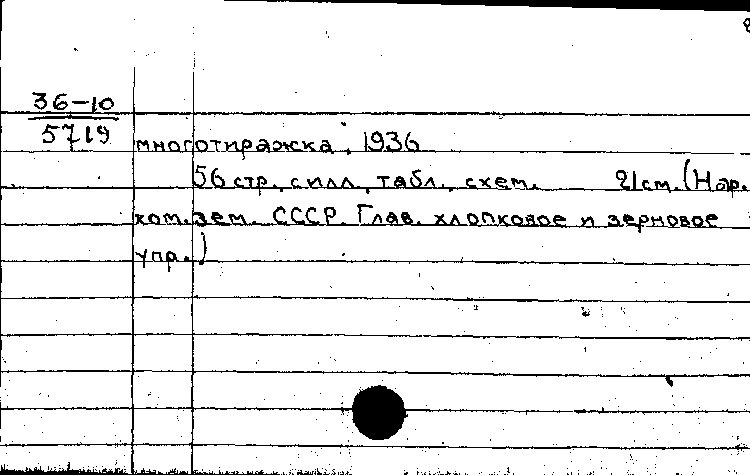 36-10
5719
многотиражка, 1936
56 стр. с илл., табл., схем. 21 см. (Нар.
ком. зем. СССР. Глав. хлопковое и зерновое
упр.)